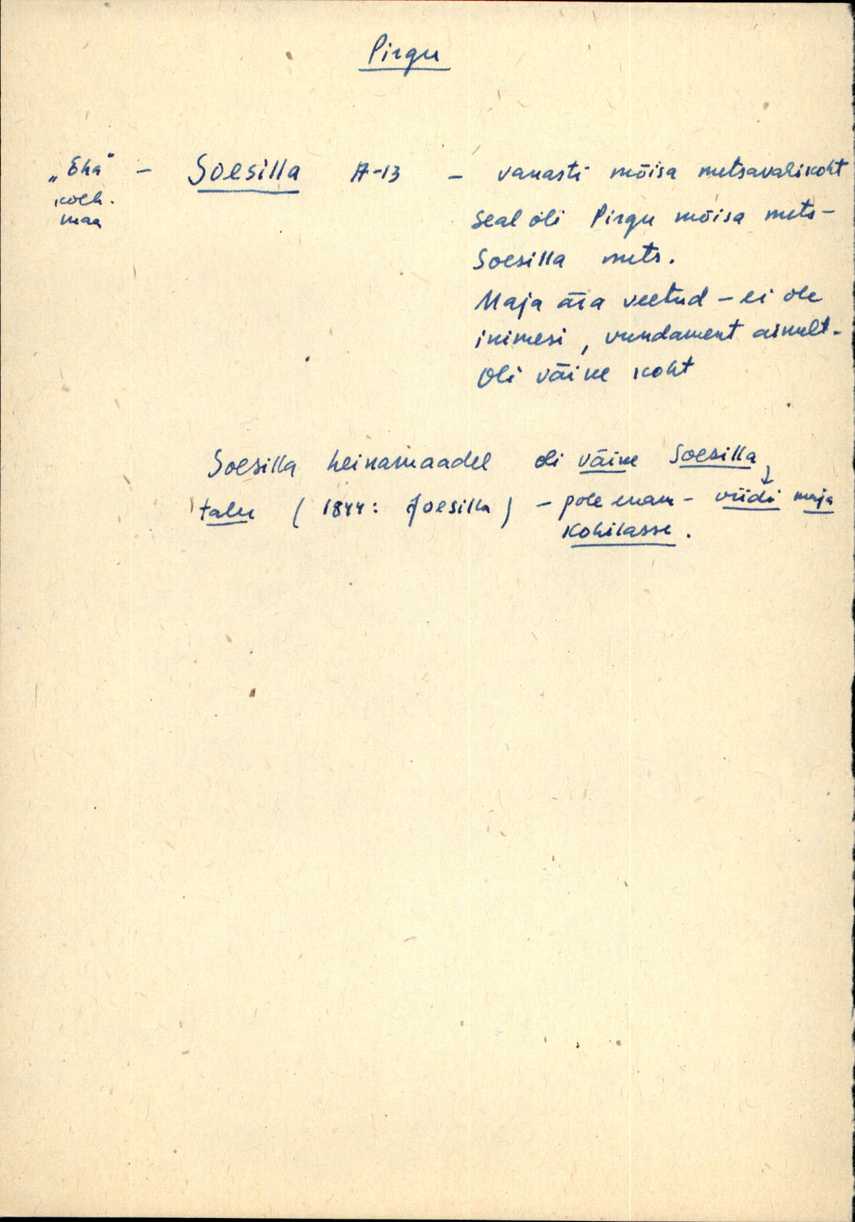 Pirgu
„Eha" - Soesilla A-13 - vanasti mõisa metsavahikoht
kolh.
maa
Seal oli Pirgu mõisa mets-
Soesilla mets.
Maja ära veetud - ei ole
inimesi, vundament ainult.
Oli väike koht
Soesilla heinamaadel oli väike Soesilla
talu (1844: Joesilla) - pole enam - viidi maja
Kohilasse.